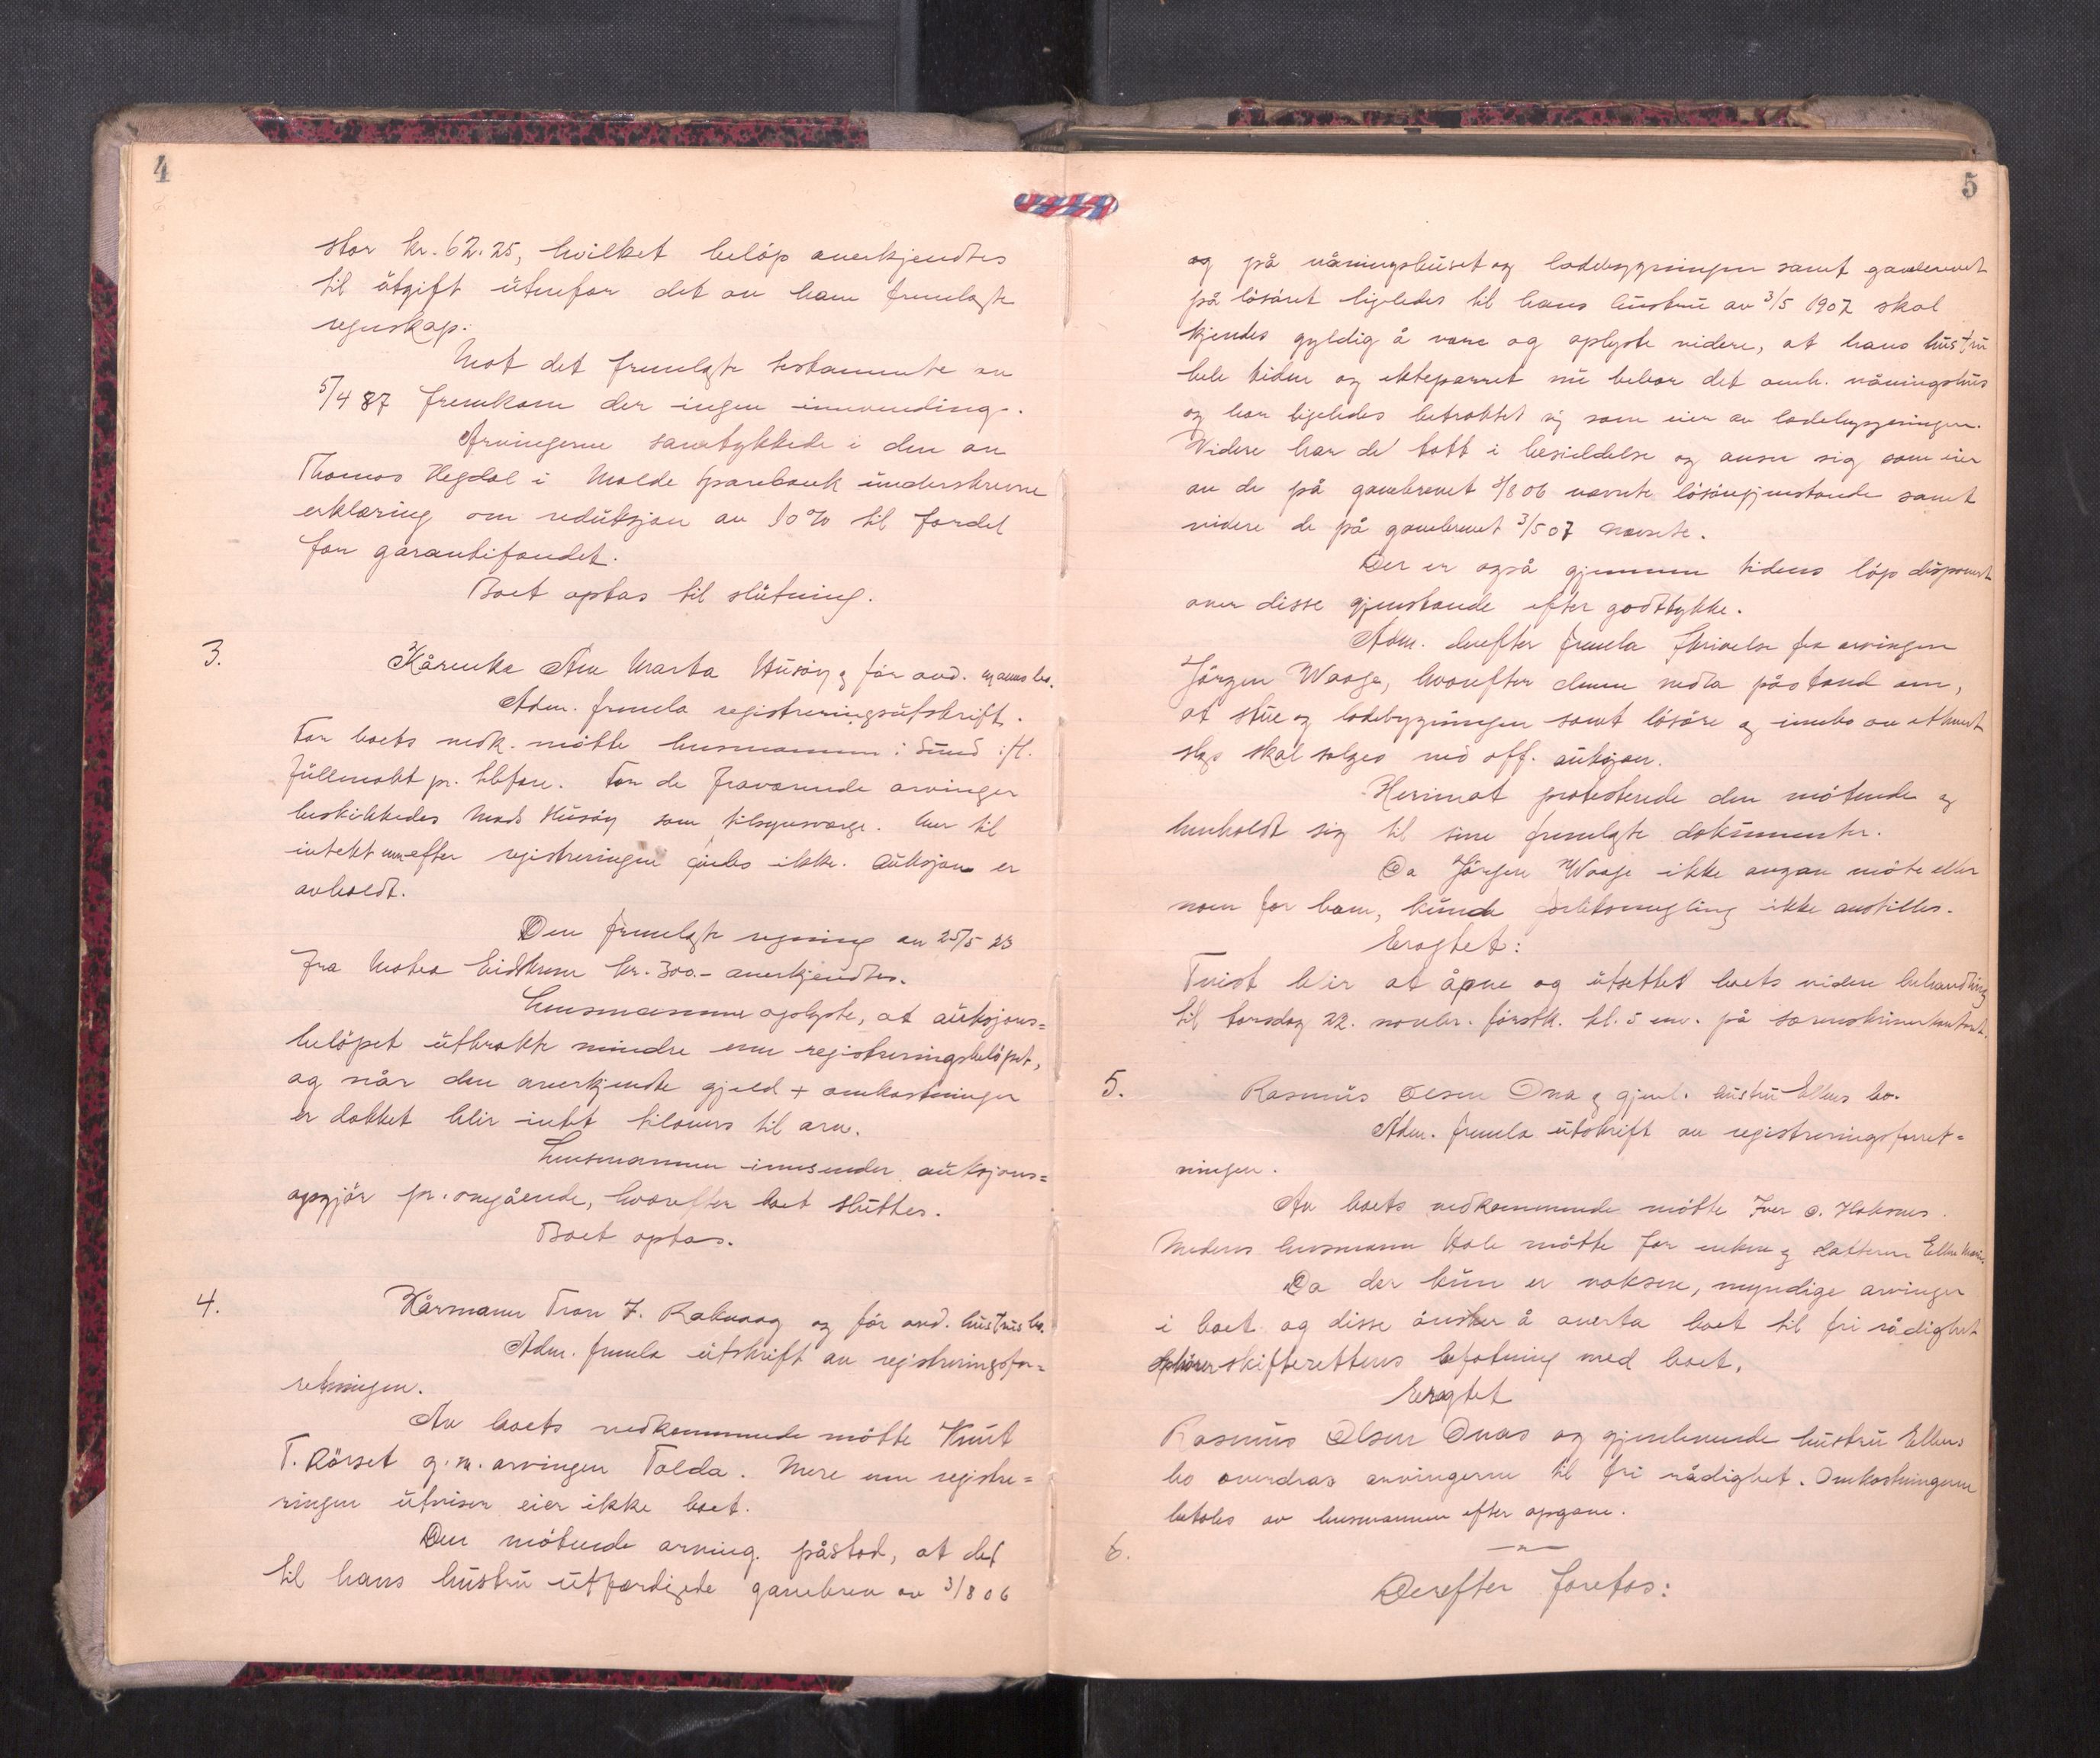 4
stor kr. 62.25, hvilket beløp anerkjendtes
til utgift utenfor det av ham fremlagte
regnskap.
Mot det fremlagte testamente av
5/4 87 fremkom der ingen innvending.
Arvingerne samtykkede i den av
Thomas Hegdal i Molde Sparebank underskrevne
erklæring om reduksjon av 10% til fordel
for garantifondet.
Boet optas til slutning.
3. Kårenke Ane Marta Husøy og før avd. manns bo.
Adm. fremla registreringsutskrift.
For boets vedk. møtte lensmannen i Sund i fl.
fullmakt pr. tlfon. For de fraværende arvinger
beskikkedes Mads Husøy som tilsynsværge. Mer til
inntekt enn efter registreringen eiedes ikke. Auksjon er
avholdt.
Den fremlagte regning av 25/5 23
fra Matea Eidkrem kr. 300.- anerkjendtes.
Lensmannen oplyste, at auksjons=
beløpet utbrakte mindre enn registreringsbeløpet,
og når den anerkjendte gjeld + omkostninger
er dekket blir intet tilovers til arv.
Lensmannen innsender auksjons=
opgjør pr. omgående, hvorefter boet sluttes.
Boet optas.
4. Kårmann Tron J. Raknaag og før avd. hustrus bo.
Adm. fremla utskrift av registreringsfor=
retningen.
Av boets vedkommende møtte Knut
T. Rørset g. m. arvingen Tolda. Mere enn registre=
ringen utviser eier ikke boet.
Den møtende arving påstod, at det
til hans hustru utfærdigede gavebrev av 3/8 06
5
og på våningshuset og ladebygningen samt gavebrevet
på løsøret ligeledes til hans hustru av 3/5 1907 skal
kjendes gyldig å være og oplyste videre, at hans hustru
hele tiden og ekteparret nu bebor det omh. våningshus
og har ligeledes betraktet sig som eier av ladebygningen.
Videre har de tatt i besiddelse og anser sig som eier
av de på gavebrevet 3/8 06 nævnte løsøregjenstande samt
videre de på gavebrevet 3/5 07 nævnte.
Der er også gjennem tidens løp disponert
over disse gjenstande efter godttykke.
Adm. derefter fremla skrivelse fra arvingen
Jørgen Waage, hvorefter denne nedla påstand om,
at stue og ladebygningen samt løsøre og innbo av ethvert
slags skal selges ved off. auksjon.
Herimot protesterede den møtende og
henholdt sig til sine fremlagte dokumenter.
Da Jørgen Waage ikke angav møte eller
noen for ham, kunde forliksmegling ikke anstilles.
Eragtet:
Tvist blir at åpne og utsettes boets videre behandling
til torsdag 22. novbr. førstk. kl. 5 em. på sorenskriverkontoret.
5. Rasmus Olsen Ona og gjenl. hustru Ellens bo.
Adm. fremla utskrift av registreringsforret=
ningen.
Av boets vedkommende møtte Iver O. Haksnes.
Medens lensmann Hole møtte for enken og datteren Ellen Marie.
Da der kun er voksne, myndige arvinger
i boet og disse ønsker å overta boet til fri rådighet
ophører skifterettens befatning med boet.
Eragtet
Rasmus Olsen Onas og gjenlevende hustru Ellens
bo overdras arvingerne til fri rådighet. Omkostningerne
betales av lensmannen efter opgave.
6.
Derefter foretas: